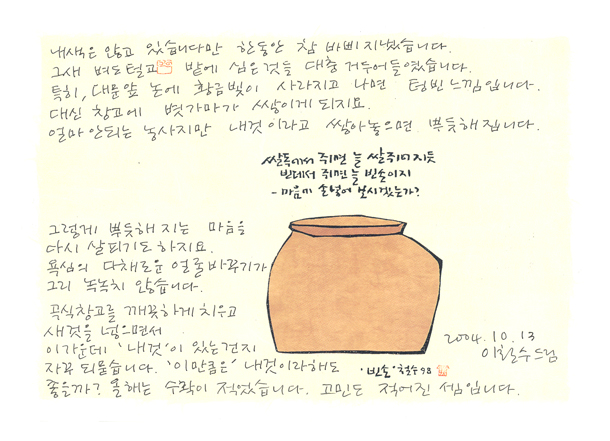 내색은 않고 있습니다만 한동안 참 바삐 지냈습니다.
그새 벼도 털고 밭에 심은 것들 대충 거두어들였습니다.
특히, 대문앞 논에 황금빛이 사라지고 나면 텅빈 느낌입니다.
대신 창고에 볏가마가 쌓이게 되지요.
얼마 안되는 농사지만 내것이라고 쌓아놓으면 뿌듯해집니다.
쌀독에서 쥐면 늘 쌀줌이지듯
빈데서 쥐면 늘 빈손이지
- 마음에 손넣어 보시겠는가?
그렇게 뿌듯해 지는 마음을
다시 살피기도 하지요.
욕심의 다채로운 얼굴바꾸기가
그리 녹녹치 않습니다.
곡식창고를 깨끗하게 치우고
새것을 넣으면서
이 가운데 '내것'이 있는건지
자꾸 되묻습니다. '이만큼은' 내것이라해도
좋을까? 올해는 수확이 적었습니다. 고민도 적어진 셈입니다.
·빈손· 철수 98
2004.10.13
이철수 드림